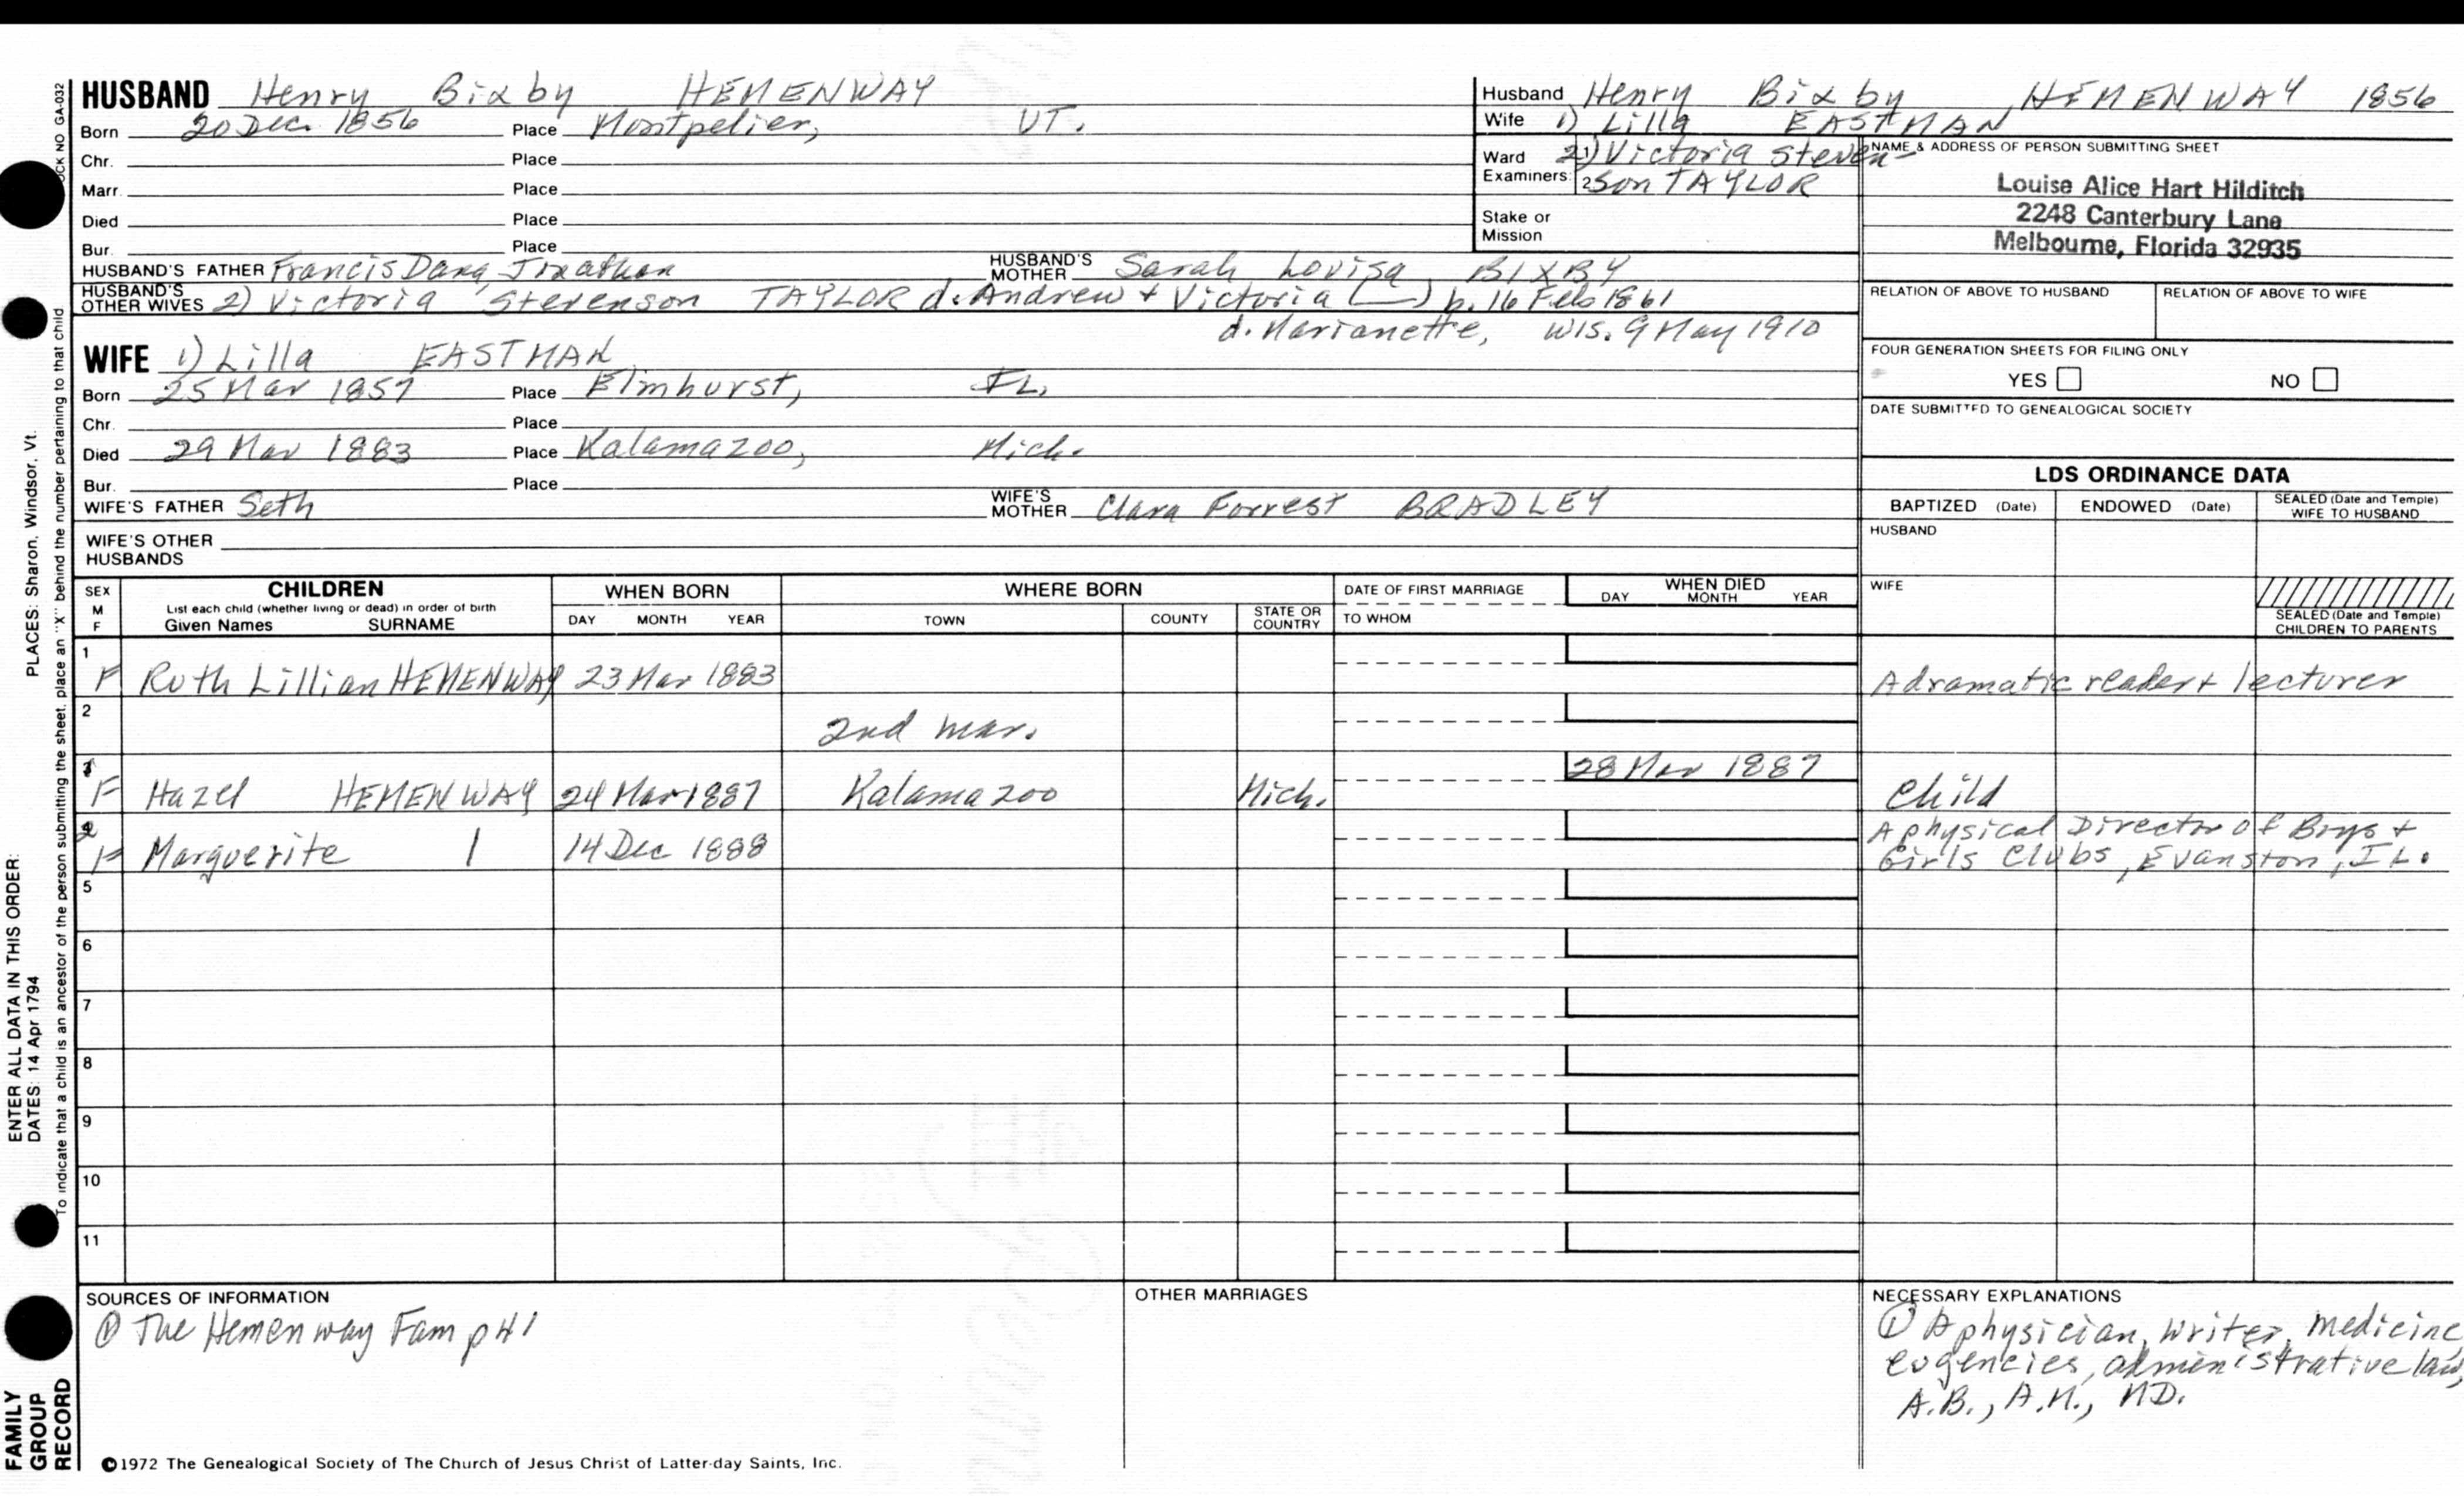 HUSBAND Henry Bixby HEMENWAY
Born 20 Dec. 1856 Place Montpelier, VT.
Chr. Place
Marr. Place
Died Place
Bur. Place
HUSBAND'S FATHER Francis Dana Jonathan HUSBAND'S MOTHER Sarah Lovisa BIXBY
HUSBAND'S OTHER WIVES 2) Victoria Stevenson TAYLOR d. Andrew + Victoria (—) b. 16 Feb 1861
d. Marianette, WIS. 9 May 1910
WIFE 1) Lilla EASTMAN
Born 25 Mar 1857 Place Elmhurst, IL.
Chr. Place
Died 29 Mar 1883 Place Kalamazoo, Mich.
Bur. Place
WIFE'S FATHER Seth WIFE'S MOTHER Clara Forrest BRADLEY
WIFE'S OTHER HUSBANDS
Husband Henry Bixby HEMENWAY 1856
Wife 1) Lilla EASTMAN
Ward 1. 2) Victoria Steven-
Examiners: 2. son TAYLOR
Stake or Mission
NAME & ADDRESS OF PERSON SUBMITTING SHEET
Louise Alice Hart Hilditch
2248 Canterbury Lane
Melbourne, Florida 32935
RELATION OF ABOVE TO HUSBAND RELATION OF ABOVE TO WIFE
FOUR GENERATION SHEETS FOR FILING ONLY
YES NO
DATE SUBMITTED TO GENEALOGICAL SOCIETY
LDS ORDINANCE DATA
BAPTIZED (Date) ENDOWED (Date) SEALED (Date and Temple) WIFE TO HUSBAND
HUSBAND
WIFE
SEALED (Date and Temple) CHILDREN TO PARENTS
SEX M F CHILDREN WHEN BORN WHERE BORN DATE OF FIRST MARRIAGE WHEN DIED
List each child (whether living or dead) in order of birth
Given Names SURNAME DAY MONTH YEAR TOWN COUNTY STATE OR COUNTRY TO WHOM DAY MONTH YEAR
1 F Ruth Lillian HEMENWAY 23 Mar 1883 A dramatic reader + lecturer
2 2nd mar.
1 F Hazel HEMENWAY 24 Mar 1887 Kalamazoo Mich. 28 Mar 1887 Child
2 F Marguerite | 14 Dec 1888 A physical Director of Boys +
Girls Clubs, Evanston, IL.
5
6
7
8
9
10
11
SOURCES OF INFORMATION
① The Hemenway Fam p 41
OTHER MARRIAGES
NECESSARY EXPLANATIONS
① A physician, writer, medicine
eugencies, administrative law,
A.B., A.M., MD.
©1972 The Genealogical Society of The Church of Jesus Christ of Latter-day Saints, Inc.
FAMILY
GROUP
RECORD
ENTER ALL DATA IN THIS ORDER:
DATES: 14 Apr 1794 PLACES: Sharon, Windsor, Vt.
To indicate that a child is an ancestor of the person submitting the sheet, place an "X" behind the number pertaining to that child
NO GA-032